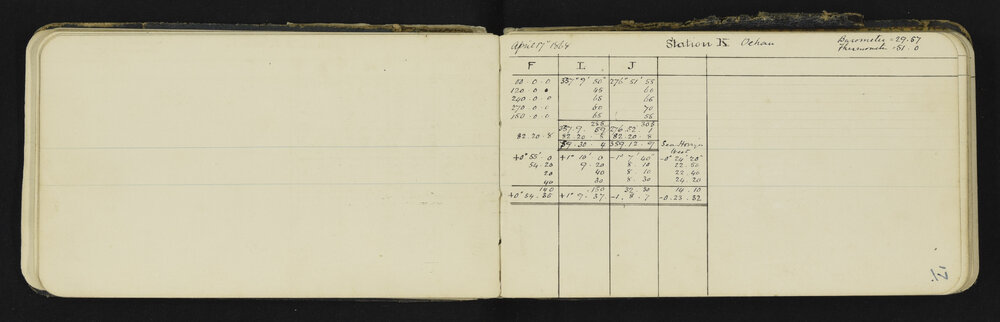 April 17th 1864 Station K Oehau Barometer = 29.57
Thermometer = 51.0
F I J
00.0.0 337° 9' 50" 276° 51' 55
120.0.0 45 60
240.0.0 65 65
270.0.0 60 70
150.0.0 65 55
285 305
337.9.59 276.52.1
82.20.8 82.20.8 82.20.8
59.30.4 359.12.9 Sea Horizn
West
+0° 55' 0 +1° 10' 0 -1° 7' 40" -0° 24' 20"
54.20 9.20 8.10 22.50
20 40 8.10 22.40
40 30 8.30 24.20
140 150 32.30 14.10
+0° 54.35 +1° 9.37 -1.8.7 -0.23.32